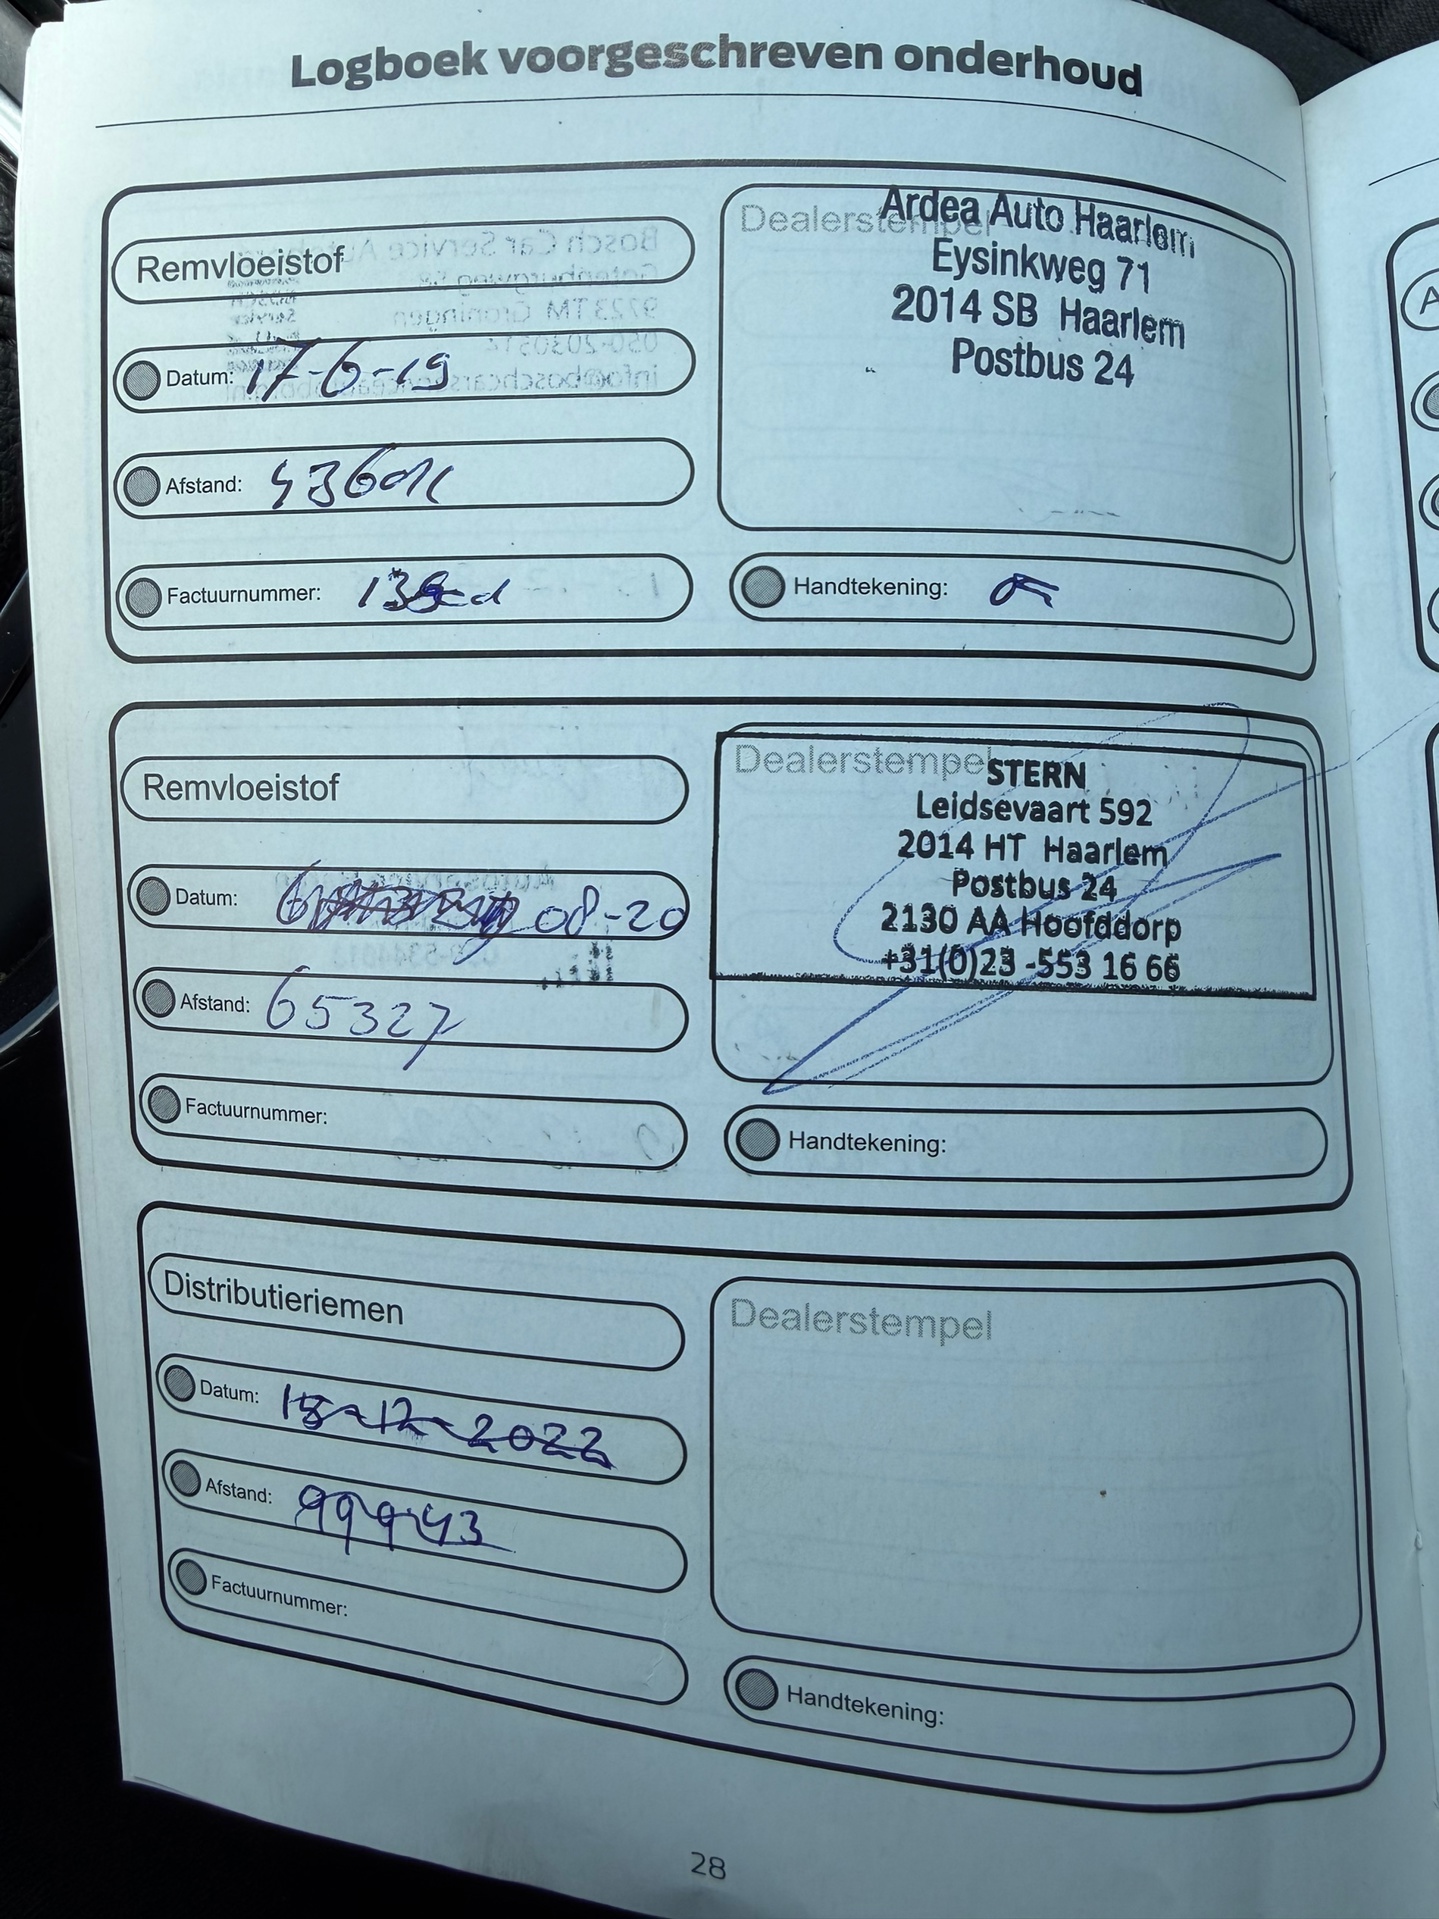 Logboek voorgeschreven onderhoud
Remvloeistof
Datum: 17-6-19
Afstand:
Factuurnummer:
Dealerstempel
Ardea Auto Haarlem
Eysinkweg 71
2014 SB Haarlem
Postbus 24
Handtekening:
Remvloeistof
Datum: 08-20
Afstand: 65327
Factuurnummer:
Dealerstempel
STERN
Leidsevaart 592
2014 HT Haarlem
Postbus 24
2130 AA Hoofddorp
+31(0)23 -553 16 66
Handtekening:
Distributieriemen
Datum: 15-12-2022
Afstand: 99943
Factuurnummer:
Dealerstempel
Handtekening:
28